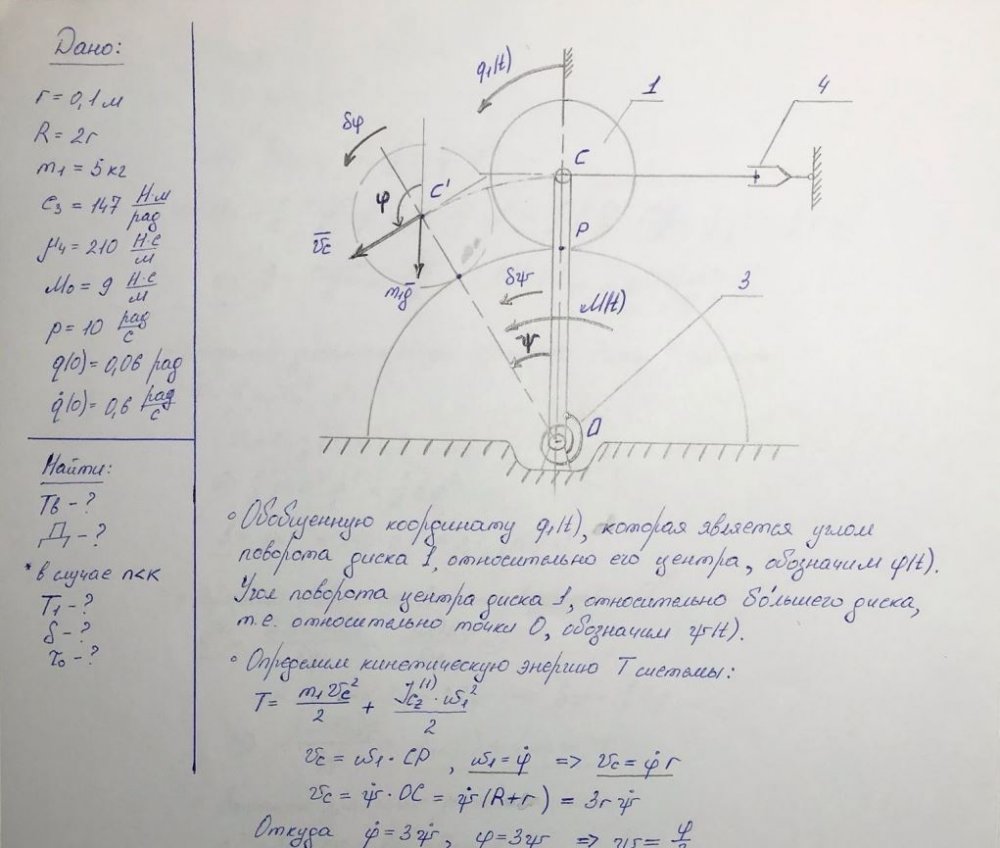 Дано:
r = 0,1 м
R = 2r
m₁ = 5 кг
c₃ = 147 Н·м/рад
μ₄ = 210 Н·с/м
M₀ = 9 Н·с/м
p = 10 рад/с
q(0) = 0,06 рад
q̇(0) = 0,6 рад/с
Найти:
Tв - ?
Д - ?
* в случае n<k
T₁ - ?
δ - ?
τ₀ - ?
q₁(t)
1
4
δφ
C
φ
C'
v̄c
P
m₁ḡ
δψ
M(t)
3
ψ
O
° Обобщенную координату q₁(t), которая является углом
поворота диска 1, относительно его центра, обозначим φ(t).
Угол поворота центра диска 1, относительно бо́льшего диска,
т.е. относительно точки O, обозначим ψ(t).
° Определим кинетическую энергию T системы:
T = m₁vc²/2 + Jcz⁽¹⁾·ω₁²/2
vc = ω₁·CP, ω₁ = φ̇ => vc = φ̇ r
vc = ψ̇·OC = ψ̇(R+r) = 3rψ̇
Откуда φ̇ = 3ψ̇, φ = 3ψ => ψ = φ/3